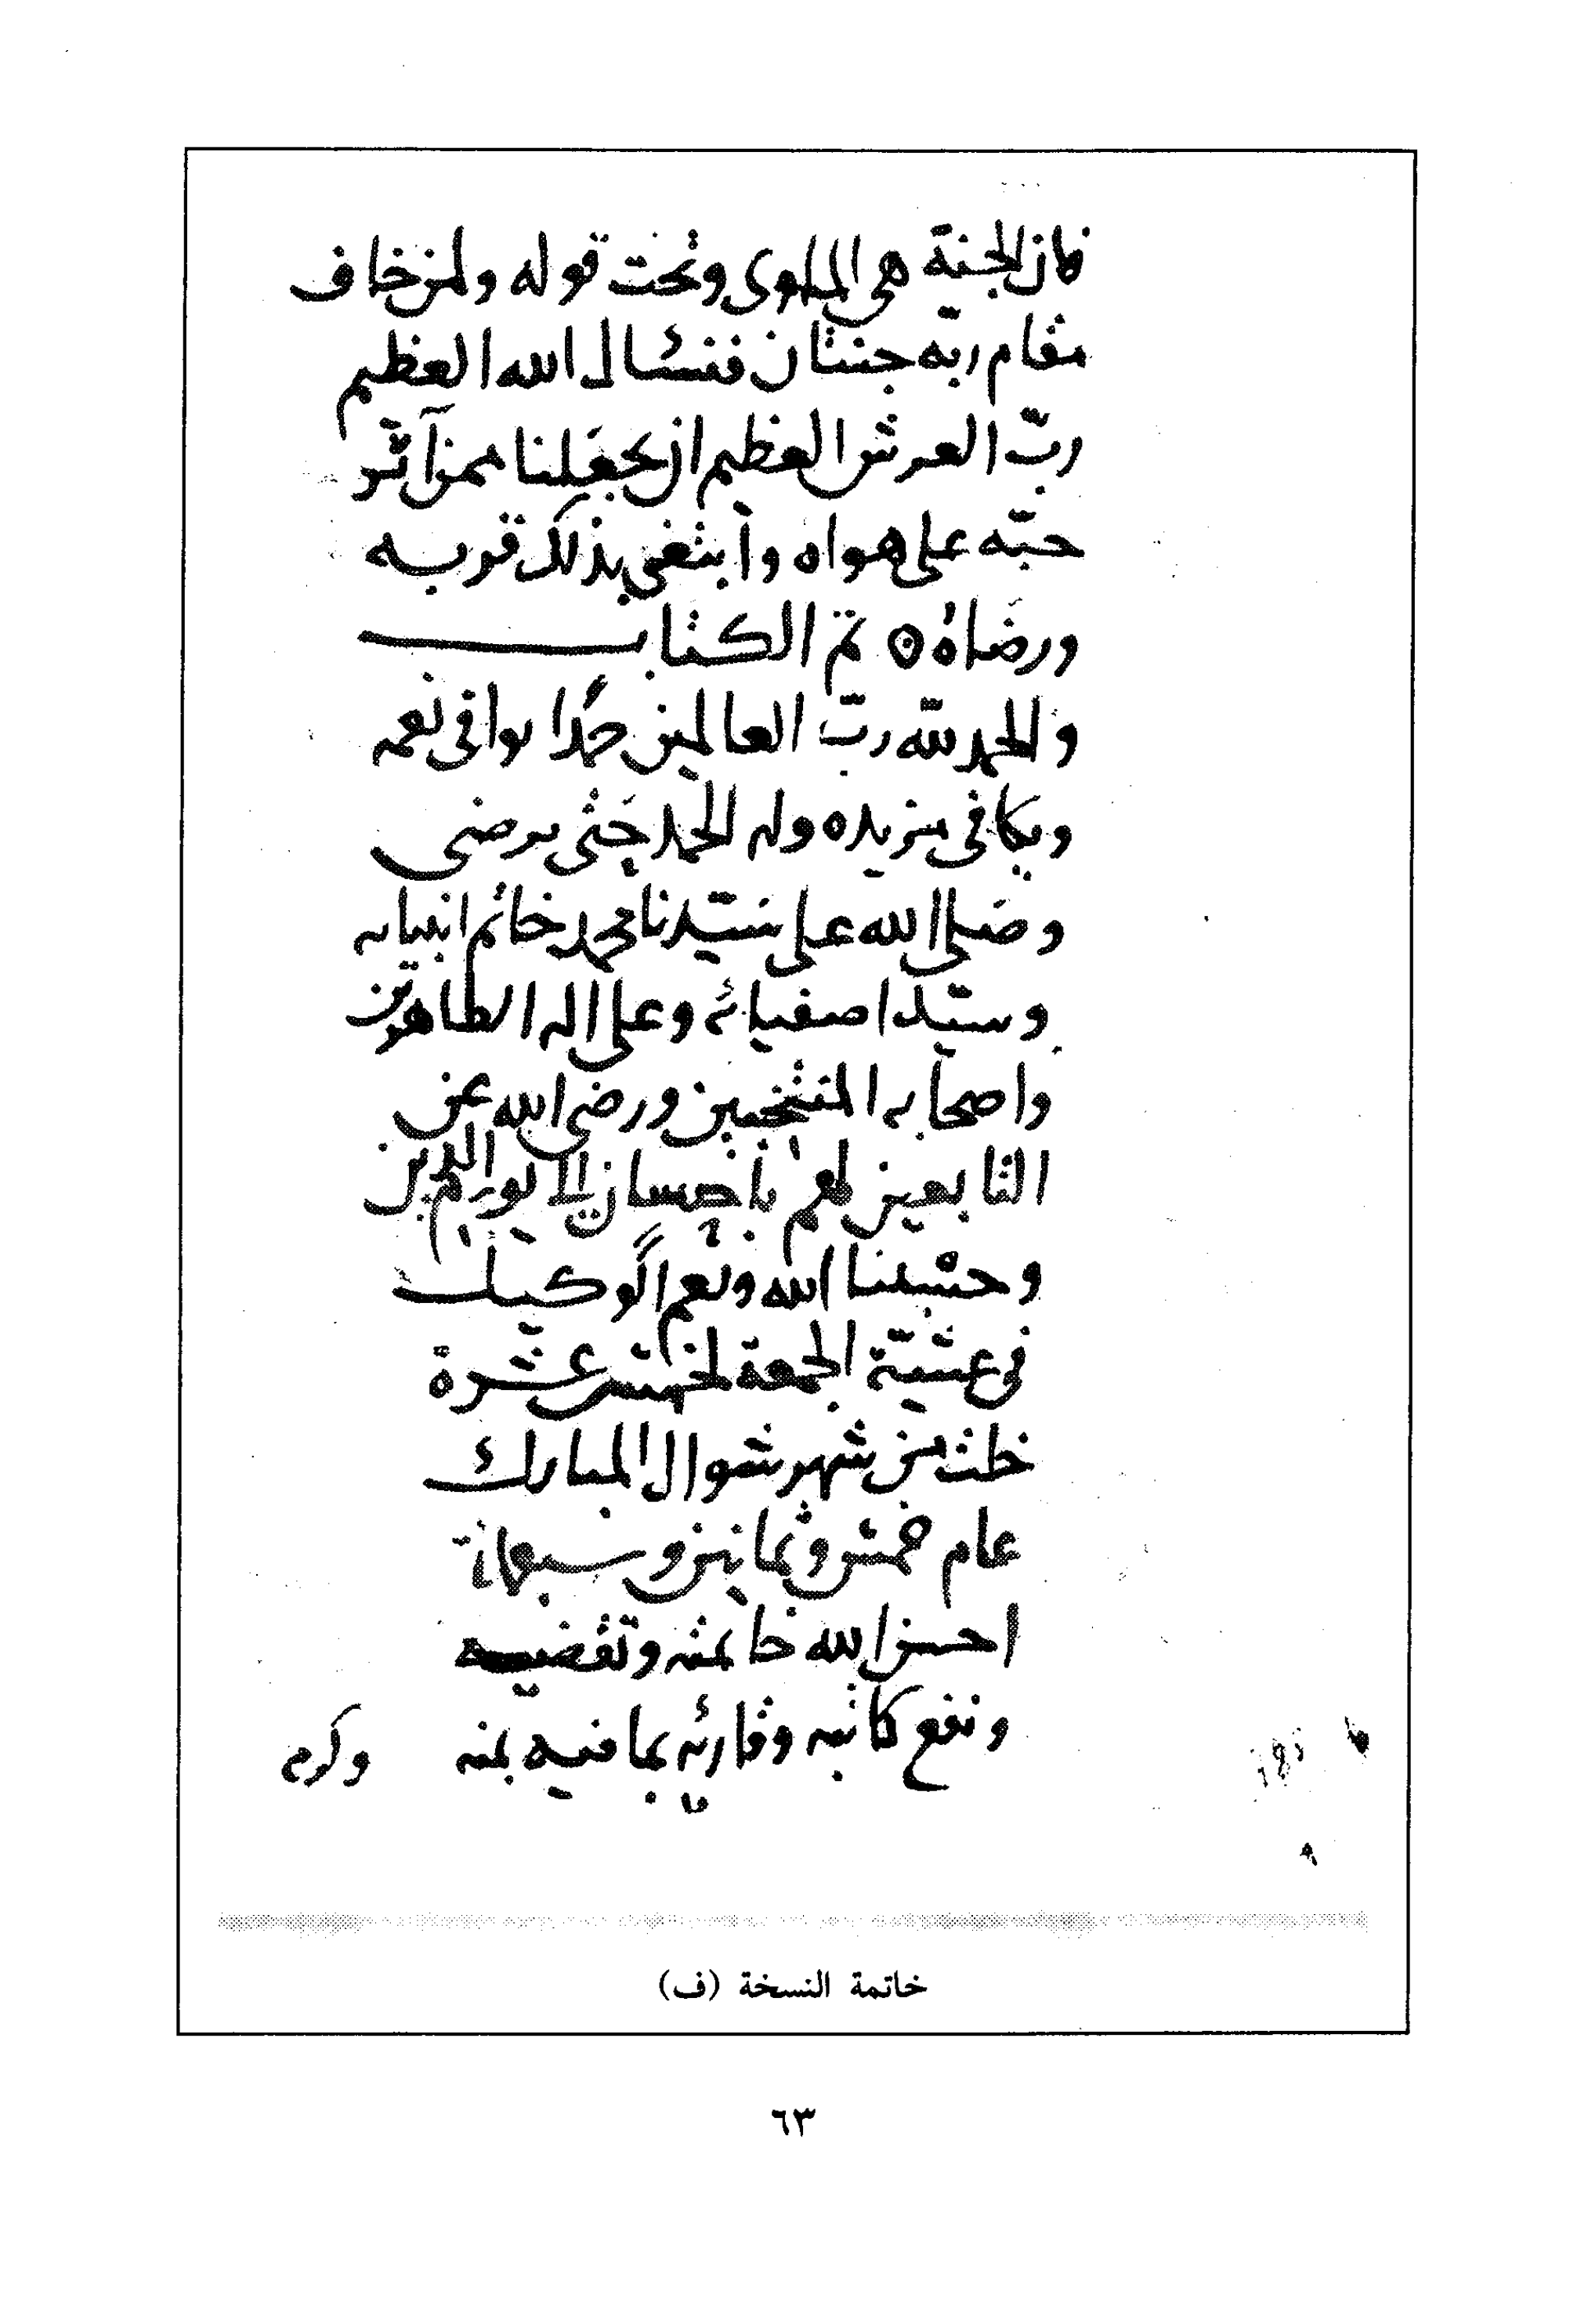 فان الجنة هي الماوى وتحت قوله ولمن خاف
مقام ربّه جنتان فنسئال الله العظيم
ربّ العرش العظيم ان يجعلنا ممن آثر
حبّه على هواه وابتغى بذلك قربه
ورضاه ه تمّ الكتاب
والحمد لله ربّ العالمين حمدًا يوافى نعمه
ويكافى مزيده وله الحمد حتى يرضى
وصلى الله على سيّدنا محمد خاتم انبيايه
وسيّد اصفيائه وعلى اله الطاهرين
واصحابه المنتخبين ورضى الله عن
التابعين لهم باحسان الى يوم الدين
وحسبنا الله ونعم الوكيل
في عشيّة الجمعة لخمس عشرة
خلت من شهر شوال المبارك
عام خمس وثمانين وسبعمائة
احسن الله خاتمته وتقضيه
ونفع كاتبه وقارئه بما فيه بمنه وكرمه
خاتمة النسخة (ف)
٦٣